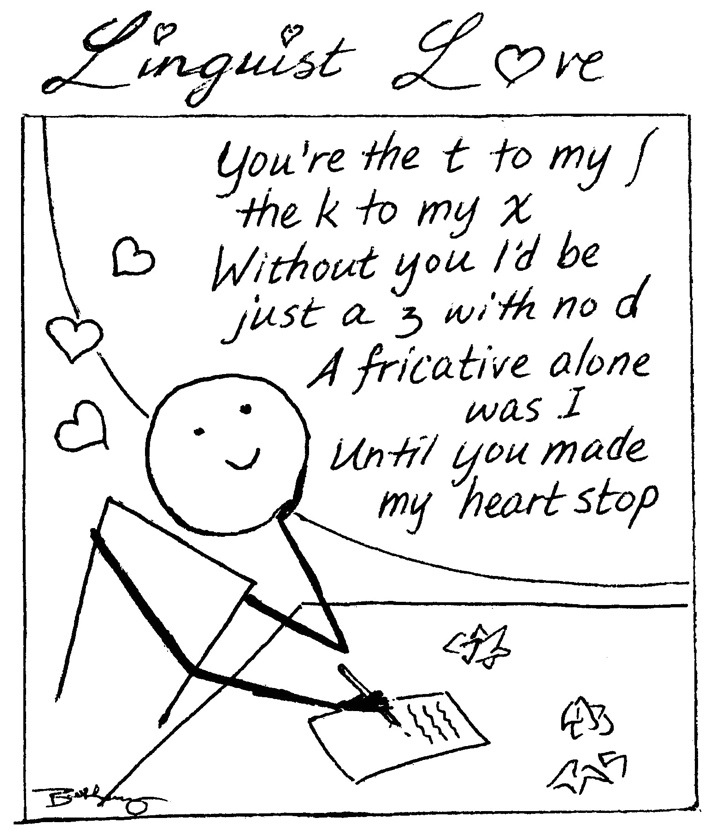 Linguist L♡ve
You're the t to my ʃ
the k to my x
Without you I'd be
just a ʒ with no d
A fricative alone
was I
Until you made
my heart stop